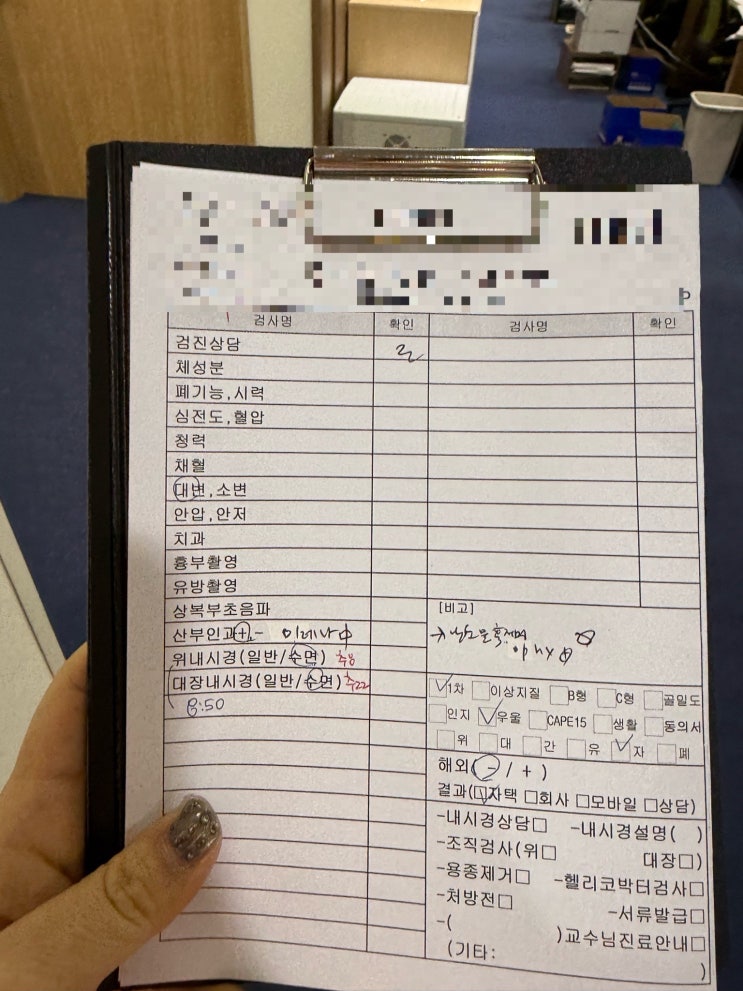 검사명 확인 검사명 확인
검진상담
체성분
폐기능,시력
심전도,혈압
청력
채혈
대변,소변
안압,안저
치과
흉부촬영
유방촬영
상복부초음파
산부인과+- 미레나
위내시경(일반/수면) 추8
대장내시경(일반/수면) 추22
8:50
[비고]
1차 이상지질 B형 C형 골밀도
인지 우울 CAPE15 생활 동의서
위 대 간 유 자 폐
해외( - / + )
결과(자택 회사 모바일 상담)
-내시경상담 -내시경설명( )
-조직검사(위 대장)
-용종제거 -헬리코박터검사
-처방전 -서류발급
-( )교수님진료안내
(기타: )